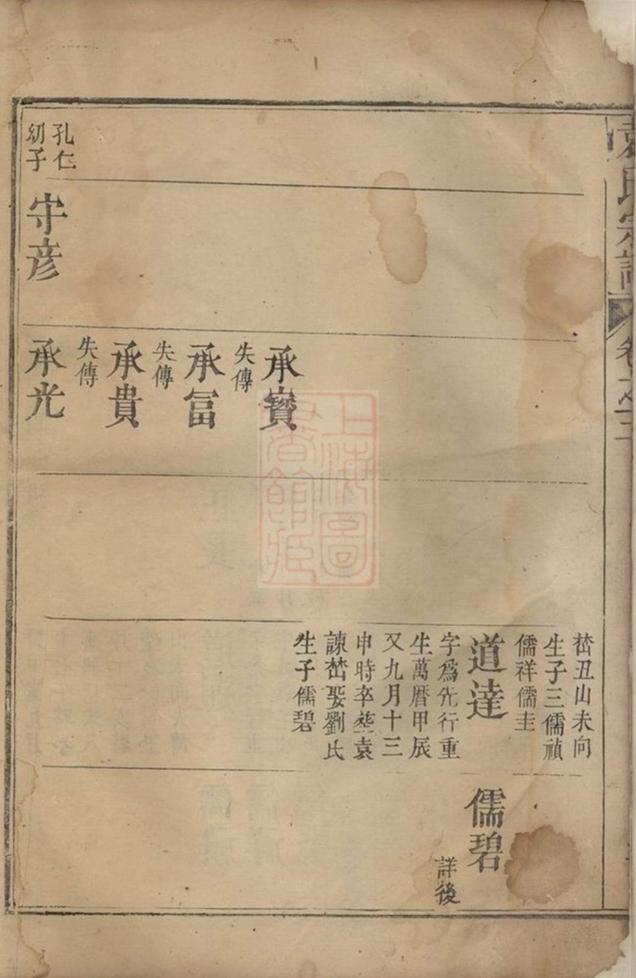 袁氏宗譜
卷之三
塟丑山未向
生子三儒禎
儒祥儒圭
道達
字爲先行重
生萬暦甲辰
又九月十三
申時卒塟袁
諫塋娶劉氏
生子儒碧
儒碧
詳後
承寶
失傳
承冨
失傳
承貴
失傳
承光
孔仁
幼子
守彦
上海圖
書館藏